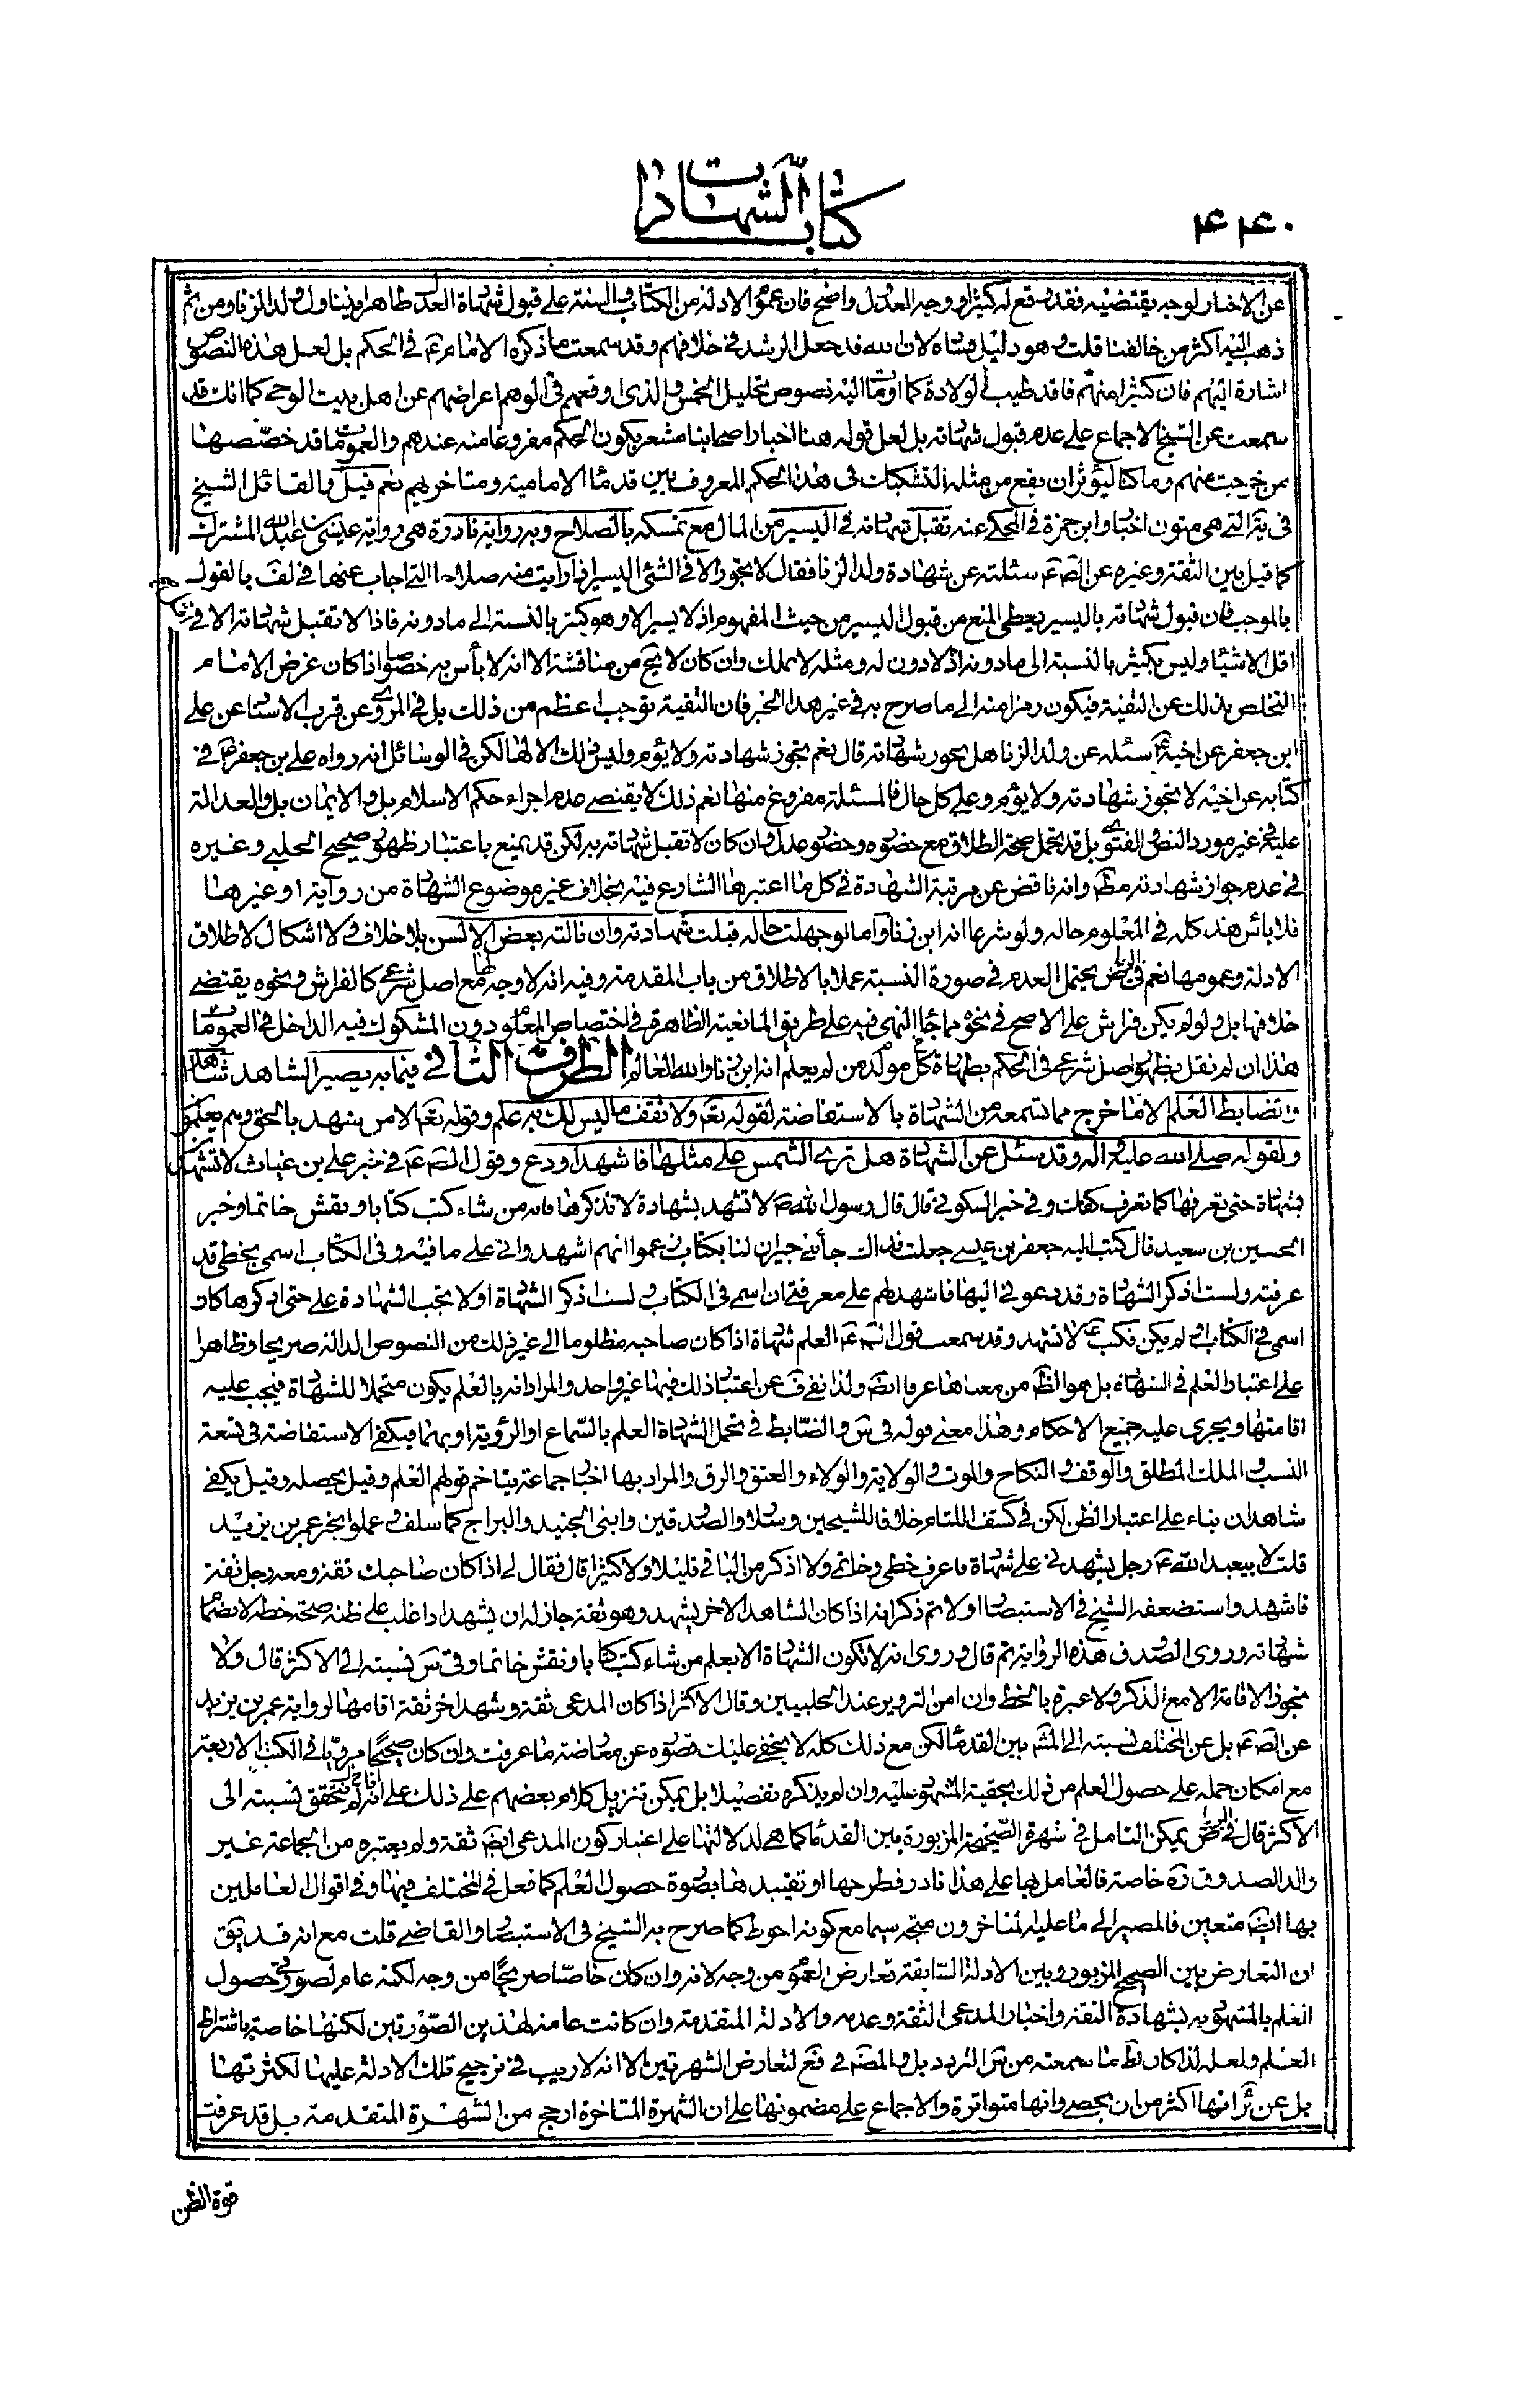 ٤٤٠
كتاب الشهادات
عن الاخبار لوجه يقتضيه فقد وقع له كثيرا ووجه العدول واضح فان عموم الادلة من الكتاب والسنة على قبول شهادة العدل ظاهرا يتناول ولد الزنا ومن ثم
ذهب اليه اكثر من خالفنا قلت وهو دليل فساده لان الله قد جعل الرشد في خلافهم وقد سمعت ما ذكره الامام ع في الحكم بل لعل هذه النصوص
اشارة اليهم فان كثيرا منهم فاقد طيب الولادة كما اومأت اليه نصوص تحليل الخمس والذي اوقعهم في الوهم اعراضهم عن اهل بيت الوحي كما انك قد
سمعت عن الشيخ الاجماع على عدم قبول شهادته بل لعل قوله هنا اخبار اصحابنا مشعر بكون الحكم مفروغا منه عندهم والعمومات قد خصصها
من خرجت منهم وما كنا ليؤثر ان يقع من مثله التشكيك في هذا الحكم المعروف بين قدماء الامامية ومتاخريهم نعم قيل والقائل الشيخ
في ية التي هي متون اخبار وابن حمزة في المحكي عنه تقبل شهادته في اليسير من المال مع تمسكه بالصلاح وبه رواية نادرة هي رواية عيسى بن عبد الله المشترك
كما قيل بين الثقة وغيره عن الصادق ع سئلته عن شهادة ولد الزنا فقال لا يجوز الا في الشئ اليسير اذا رايت منه صلاحا التي اجاب عنها في لف بالقول
بالموجب فان قبول شهادته باليسير يعطى المنع من قبول اليسير من حيث المفهوم اذ لا يسير الا وهو كثير بالنسبة الى ما دونه فاذا لا تقبل شهادته الا في
اقل الاشياء وليس بكثير بالنسبة الى ما دونه اذ لا دون له ومثله لا يملك وان كان لا يخ من مناقشة الا انه لا باس به خصوصا اذا كان غرض الامام
التخلص بذلك عن التقية فيكون رمزا منه الى ما صرح به في غير هذا الخبر فان التقية توجب اعظم من ذلك بل في المروي عن قرب الاسناد عن علي
ابن جعفر عن اخيه ع سئله عن ولد الزنا هل يجوز شهادته قال نعم يجوز شهادته ولا يؤم وليس ذلك الا لها لكن في الوسائل انه رواه علي بن جعفر ع في
كتابه عن اخيه لا يجوز شهادته ولا يؤم وعلى كل حال فالمسئلة مفروغ منها نعم ذلك لا يقتضي عدم اجراء حكم الاسلام بل والايمان بل والعدالة
عليه في غير مورد النص والفتوى بل قد يحتمل صحة الطلاق مع حضوره وحضور عدل وان كان لا تقبل شهادته به لكن قد يمنع باعتبار ظهور صحيح الحلبي وغيره
في عدم جواز شهادته مط وانه ناقص عن مرتبة الشهادة في كل ما اعتبرها الشارع فيه بخلاف غير موضوع الشهادة من رواية او غيرها
فلا باس هذا كله في المعلوم حاله ولو شرعا انه ابن زنا واما لو جهلت حاله قبلت شهادته وان نالته بعض الالسن بلا خلاف ولا اشكال لاطلاق
الادلة وعمومها نعم في الرياض يحتمل العدم في صورة النسبة عملا بالاطلاق من باب المقدمة وفيه انه لا وجه لها مع اصل شرعي كالفراش ونحوه يقتضي
خلافها بل ولو لم يكن فراش على الاصح في نحوه مما جاء النهي فيه على طريق المانعية الظاهرة في اختصاص المعلوم دون المشكوك فيه الداخل في العمومات
هذا ان لم نقل بظهور اصل شرعي في الحكم بطهارة كل مولد من لم يعلم انه ابن زنا والله العالم الطرف الثاني فيما به يصير الشاهد شاهدا
والضابط العلم الا ما خرج مما تسمعه من الشهادة بالاستفاضة لقوله تع ولا تقف ما ليس لك به علم وقوله تع الا من شهد بالحق وهم يعلمون
ولقوله صلى الله عليه واله وقد سئل عن الشهادة هل ترى الشمس على مثلها فاشهد او دع وقول الصادق ع في خبر علي بن غياث لا تشهدن
بشهادة حتى تعرفها كما تعرف كفك وفي خبر السكوني قال قال رسول الله ص لا تشهد بشهادة لا تذكرها فانه من شاء كتب كتابا ونقش خاتما وخبر
الحسين بن سعيد قال كتب اليه جعفر بن عيسى جعلت فداك جائني جيران لنا بكتاب زعموا انهم اشهدوني على ما فيه وفي الكتاب اسمي بخطي قد
عرفته ولست اذكر الشهادة وقد دعوني اليها فاشهد لهم على معرفتي ان اسمي في الكتاب ولست اذكر الشهادة او لا يجب الشهادة علي حتى اذكرها كان
اسمي في الكتاب او لم يكن فكتب ع لا تشهد وقد سمعت قول الصادق ع العلم شهادة اذا كان صاحبه مظلوما الى غير ذلك من النصوص الدالة صريحا وظاهرا
على اعتبار العلم في الشهادة بل هو الظ من معناها عرفا ايض ولذا نفى عن اعتبار ذلك فيها غير واحد والمراد انه بالعلم يكون متحملا للشهادة فيجب عليه
اقامتها ويجري عليه جميع الاحكام وهذا معنى قوله في س والضابط في تحمل الشهادة العلم بالسماع او الرؤية او بهما فيكفى الاستفاضة في تسعة
النسب والملك المطلق والوقف والنكاح والموت والولاية والولاء والعتق والرق والمراد بها اخبار جماعة يتاخم قولهم العلم وقيل يحصله وقيل يكفى
شاهدان بناء على اعتبار الظن لكن في كشف اللثام خلافا للشيخين وسلار والصدوقين وابنى الجنيد والبراج كما سلف وعملوا بخبر عمر بن يزيد
قلت لابيعبد الله ع رجل يشهدني على شهادة فاعرف خطي وخاتمي ولا اذكر من الباقي قليلا ولا كثيرا قال فقال لي اذا كان صاحبك ثقة ومعه رجل ثقة
فاشهد واستضعفه الشيخ في الاستبصار اولا ثم ذكر انه اذا كان الشاهد الاخر يشهد وهو ثقة جاز له ان يشهد اذا غلب على ظنه صحة خطه لانضمام
شهادته وروى الصدوق هذه الرواية ثم قال وروى انه لا تكون الشهادة الا بعلم من شاء كتب كتابا ونقش خاتما وفي س نسبته الى الاكثر قال ولا
يجوز الاقامة الا مع الذكر ولا عبرة بالخط وان امن التزوير عند الحلبيين وقال الاكثر اذا كان المدعي ثقة وشهد اخر ثقة اقامها لرواية عمر بن يزيد
عن الصادق ع بل عن المختلف نسبته الى المشهور بين القدماء لكن مع ذلك كله لا يخفى عليك قصوره عن معارضة ما عرفت وان كان صحيحا مرويا في الكتب الاربعة
مع امكان حمله على حصول العلم من ذلك بحقية المشهود عليه وان لم يذكره تفصيلا بل يمكن تنزيل كلام بعضهم على ذلك على انه لم يتحقق نسبته الى
الاكثر قال في الرياض يمكن التامل في شهرة الصحيحة المزبورة بين القدماء كما هي لدلالتها على اعتبار كون المدعي ايض ثقة ولم يعتبره من الجماعة غير
والد الصدوق ره خاصة فالعامل بها على هذا نادر فطرحها او تقييدها بصورة حصول العلم كما فعل في المختلف فيها وفي اقوال العاملين
بها ايض متعين فالمصير الى ما عليه المتاخرون متجه سيما مع كونه احوط كما صرح به الشيخ في الاستبصار والقاضي قلت مع انه قد يق
ان التعارض بين الصحيح المزبور وبين الادلة السابقة تعارض العموم من وجه لانه وان كان خاصا صريحا من وجه لكنه عام لصورتي حصول
العلم بالمشهود به بشهادة الثقة واخبار المدعي الثقة وعدمه والادلة المتقدمة وان كانت عامة لهذين الصورتين لكنها خاصة باشتراط
العلم ولعله لذا كان ظ ما سمعته من س التردد بل والمصنف في فع لتعارض الشهرتين الا انه لا ريب في ترجيح تلك الادلة عليها لكثرتها
بل عن ئر انها اكثر من ان يحصى وانها متواترة والاجماع على مضمونها على ان الشهرة المتاخرة ارجح من الشهرة المتقدمة بل قد عرفت
قوة الظن